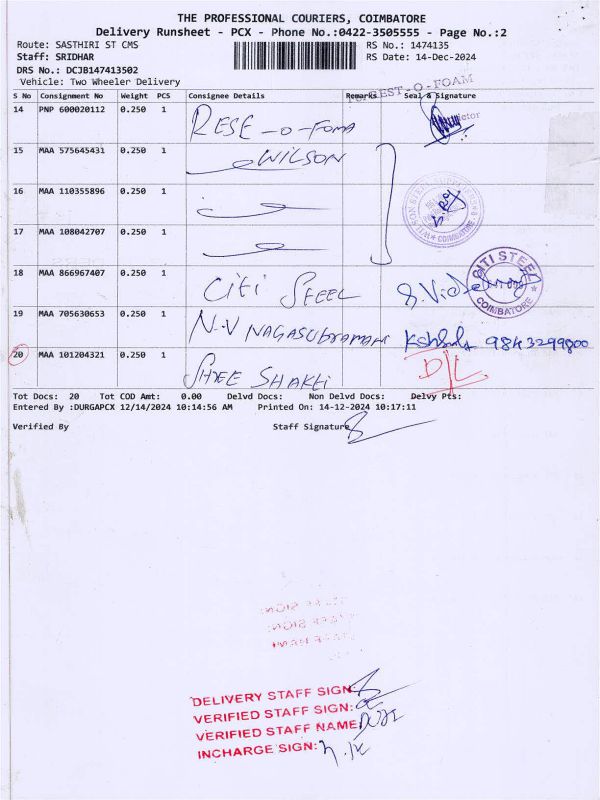 THE PROFESSIONAL COURIERS, COIMBATORE
Delivery Runsheet - PCX - Phone No.:0422-3505555 - Page No.:2
Route: SASTHIRI ST CMS RS No.: 1474135
Staff: SRIDHAR RS Date: 14-Dec-2024
DRS No.: DCJB147413502
Vehicle: Two Wheeler Delivery
REST-O-FOAM
S No Consignment No Weight PCS Consignee Details Remarks Seal & Signature
14 PNP 600020112 0.250 1 RESE-O-FOMA
15 MAA 575645431 0.250 1 WILSON
16 MAA 110355896 0.250 1
COIMBATORE
17 MAA 108042707 0.250 1
18 MAA 866967407 0.250 1 CITI STEEL
CITI STEEL
COIMBATORE
19 MAA 705630653 0.250 1 N.V NAGASUBRAMANI 9843299800
20 MAA 101204321 0.250 1 SHREE SHAKTI D/L
Tot Docs: 20 Tot COD Amt: 0.00 Delvd Docs: Non Delvd Docs: Delvy Pts:
Entered By :DURGAPCX 12/14/2024 10:14:56 AM Printed On: 14-12-2024 10:17:11
Verified By Staff Signature
DELIVERY STAFF SIGN:
VERIFIED STAFF SIGN:
VERIFIED STAFF NAME
INCHARGE SIGN: